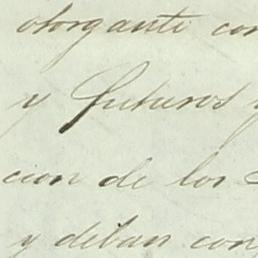 otorgante con
y futuros y
cion de los
y deban con